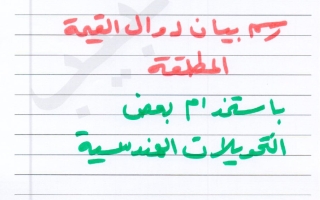 رسم بيان دوال القيمة
المطلقة
باستخدام بعض
التحويلات الهندسية